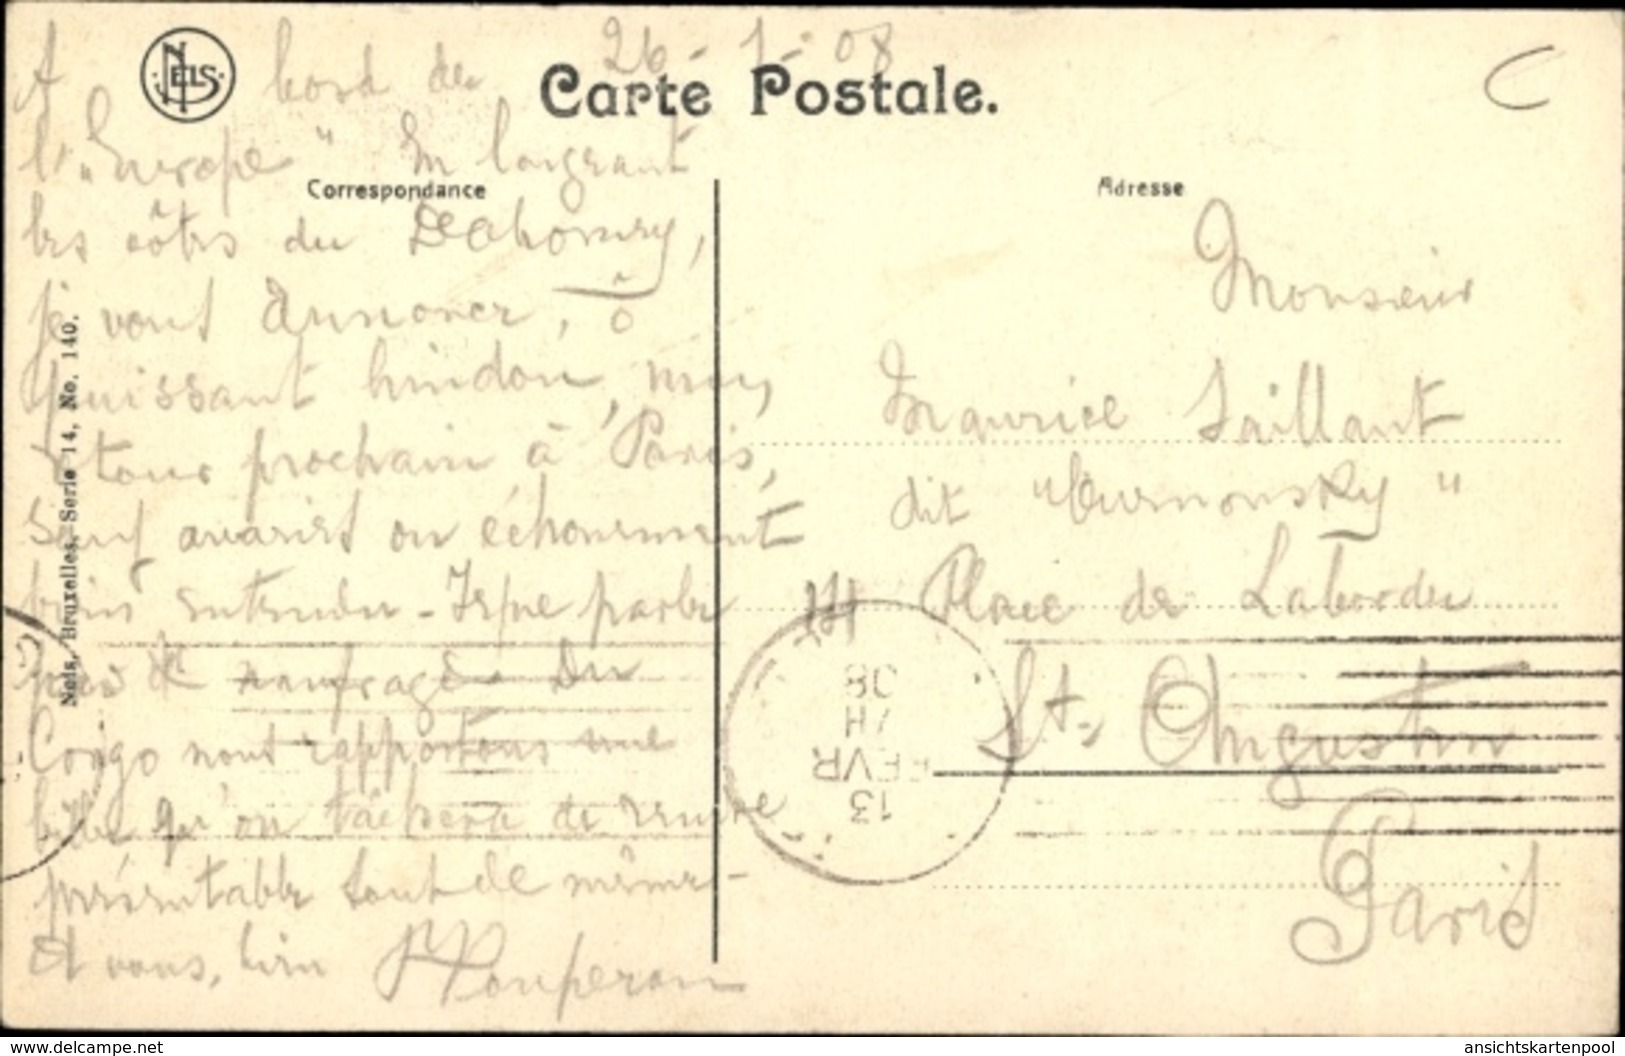 NELS
26-1-08
Carte Postale.
A bord de
l'"Europe" En longeant
Correspondance
les côtes du Dahomey,
je vous annonce, ô
puissant hindou, mon
retour prochain à Paris,
sauf avaries ou échouement
bien entendu - J'espère parler
pas de naufrage. Du
Congo nous rapportons une
bille qu'on tâchera de rendre
présentable tout de même -
Et vous, bien
Nels, Bruxelles, Serie 14, No. 140.
Adresse
Monsieur
Maurice Saillant
dit "Curnonsky"
Place de Laborde
St. Augustin
Paris
13
FEVR
7H
08
delcampe.net
ansichtskartenpool